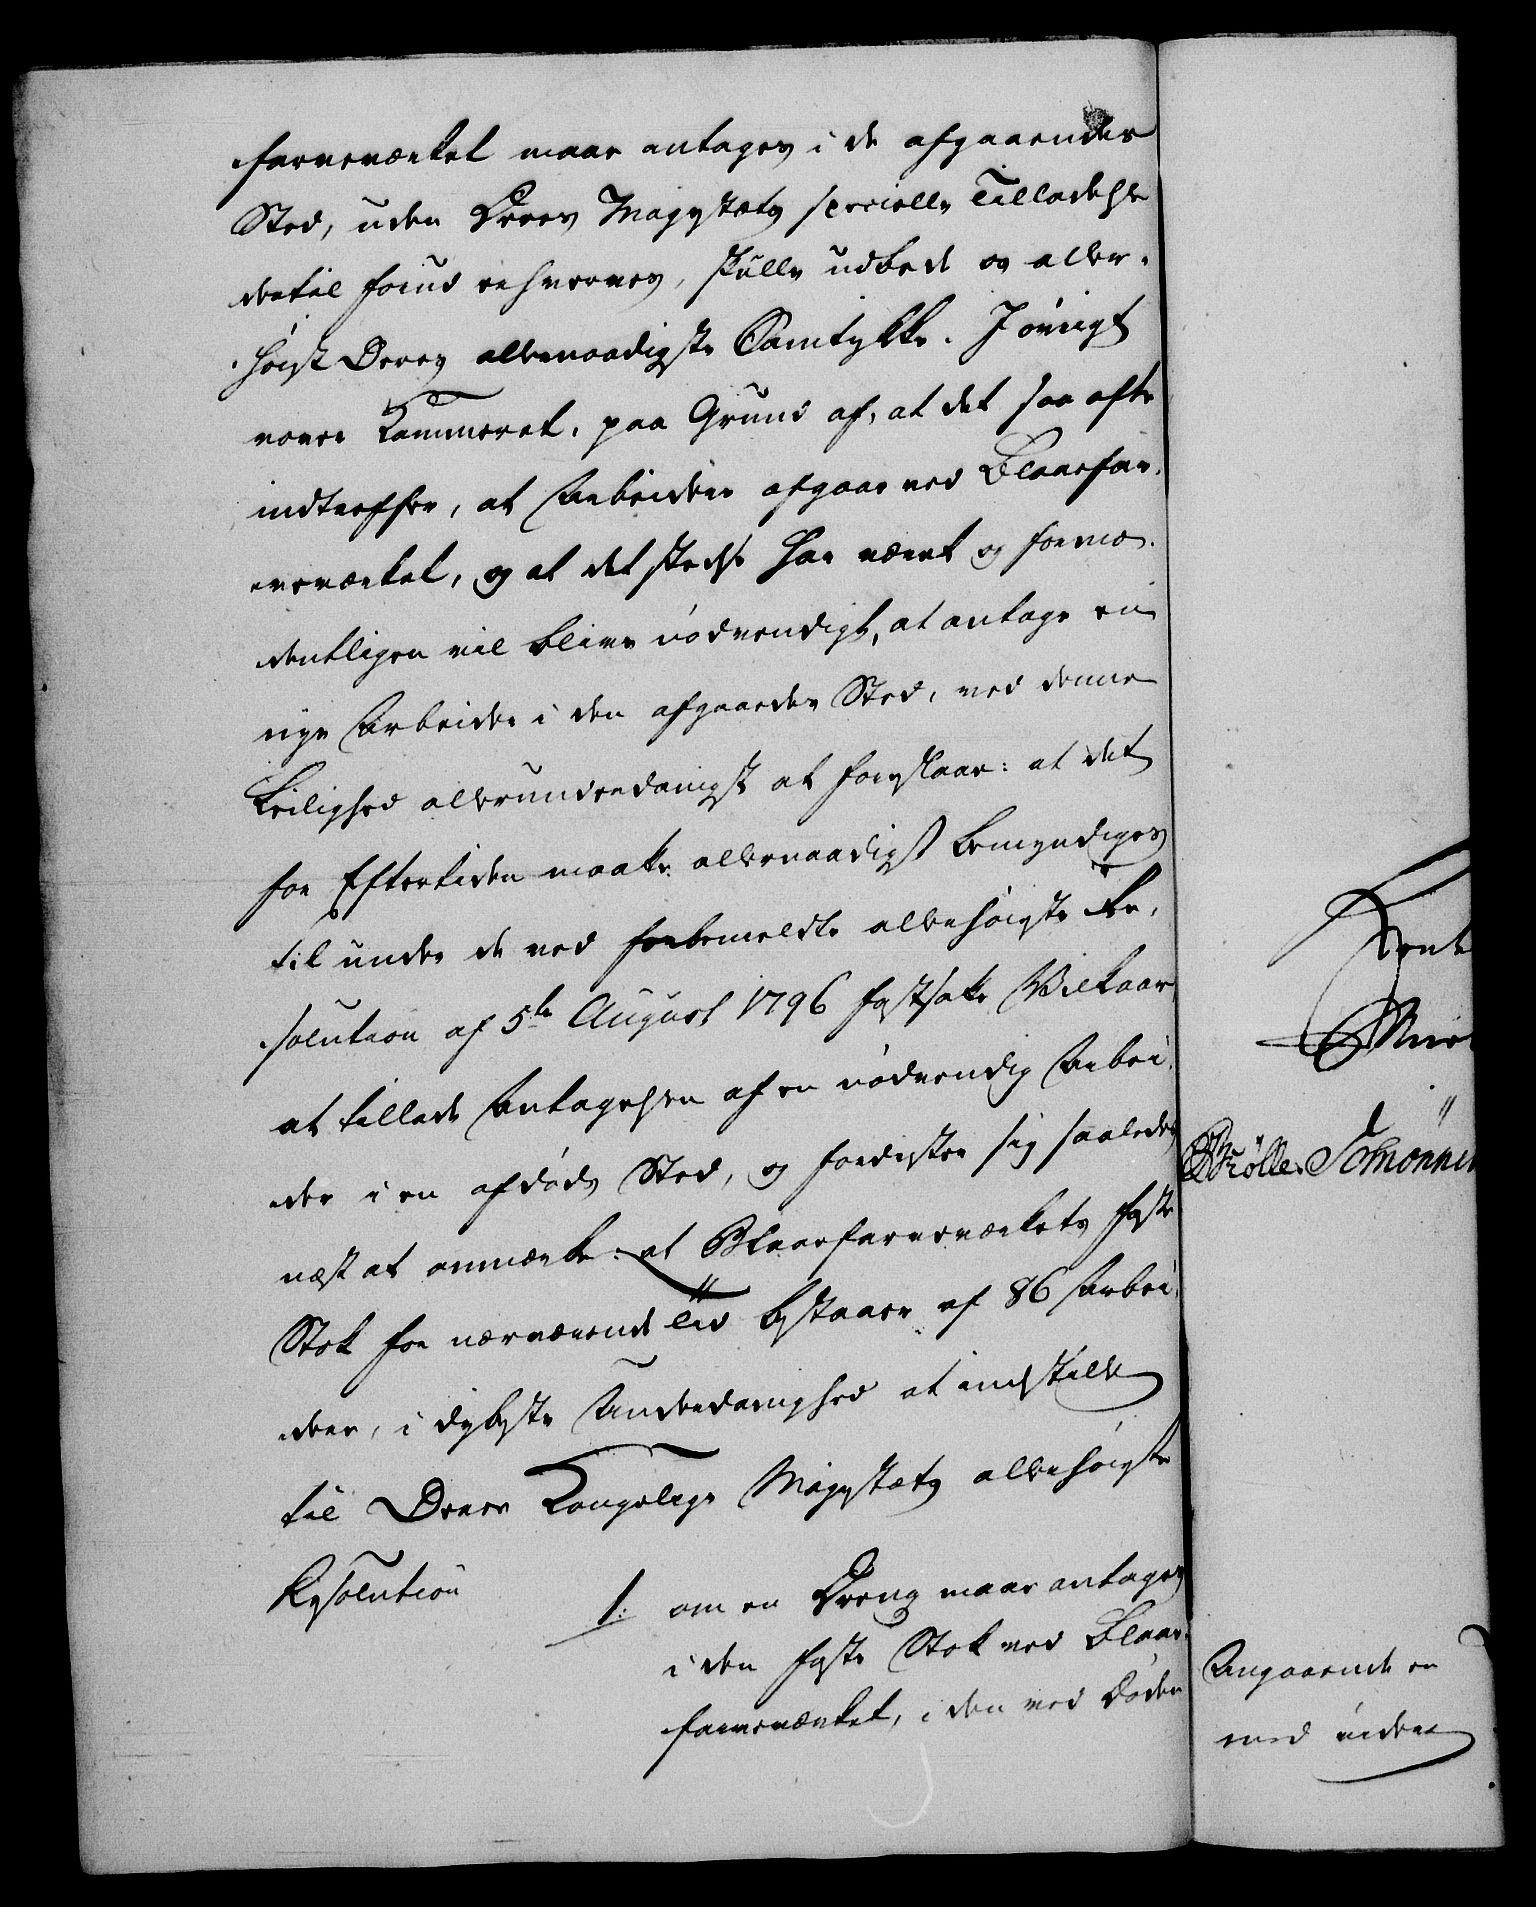 farveværket maae antages i de afgaaendes
Sted, uden Deres Majestæts specielle Tilladelse
dertil forud erhverves, skulle udbede os aller-
høist Deres allernaadigste Samtykke. I øvrigt
vover Kammeret, paa Grund af, at det saa ofte
indtreffer, at Arbeidere afgaae ved Blaaefar-
veværket, og at det stedse har været og formo-
dentligen vil blive nødvendigt, at antage en
nye Arbeider i den afgaaedes Sted, ved denne
Leilighed allerunderdanigst at foreslaae: at det
for Eftertiden maatte allernaadigst bemyndiges
til under de ved forbemeldte allerhøigste Re-
solution af 5te August 1796 fastsatte Vilkaar
at tillade Antagelsen af en nødvendig Arbei-
der i en afdøds Sted, og fordrister sig saaledes
næst at anmærke: at Blaaefarveværkets faste
Stok for nærværende Tid bestaaer af 86 Arbei-
dere, i dybeste Underdanighed at indstille
til Deres Kongelige Majestæts allerhøigste
Resolution
1. om en Dreng maae antages
i den faste Stok ved Blaae-
farveværket, i den ved Døden
Rent
Møller. Schønne
Angaaende en
med videre